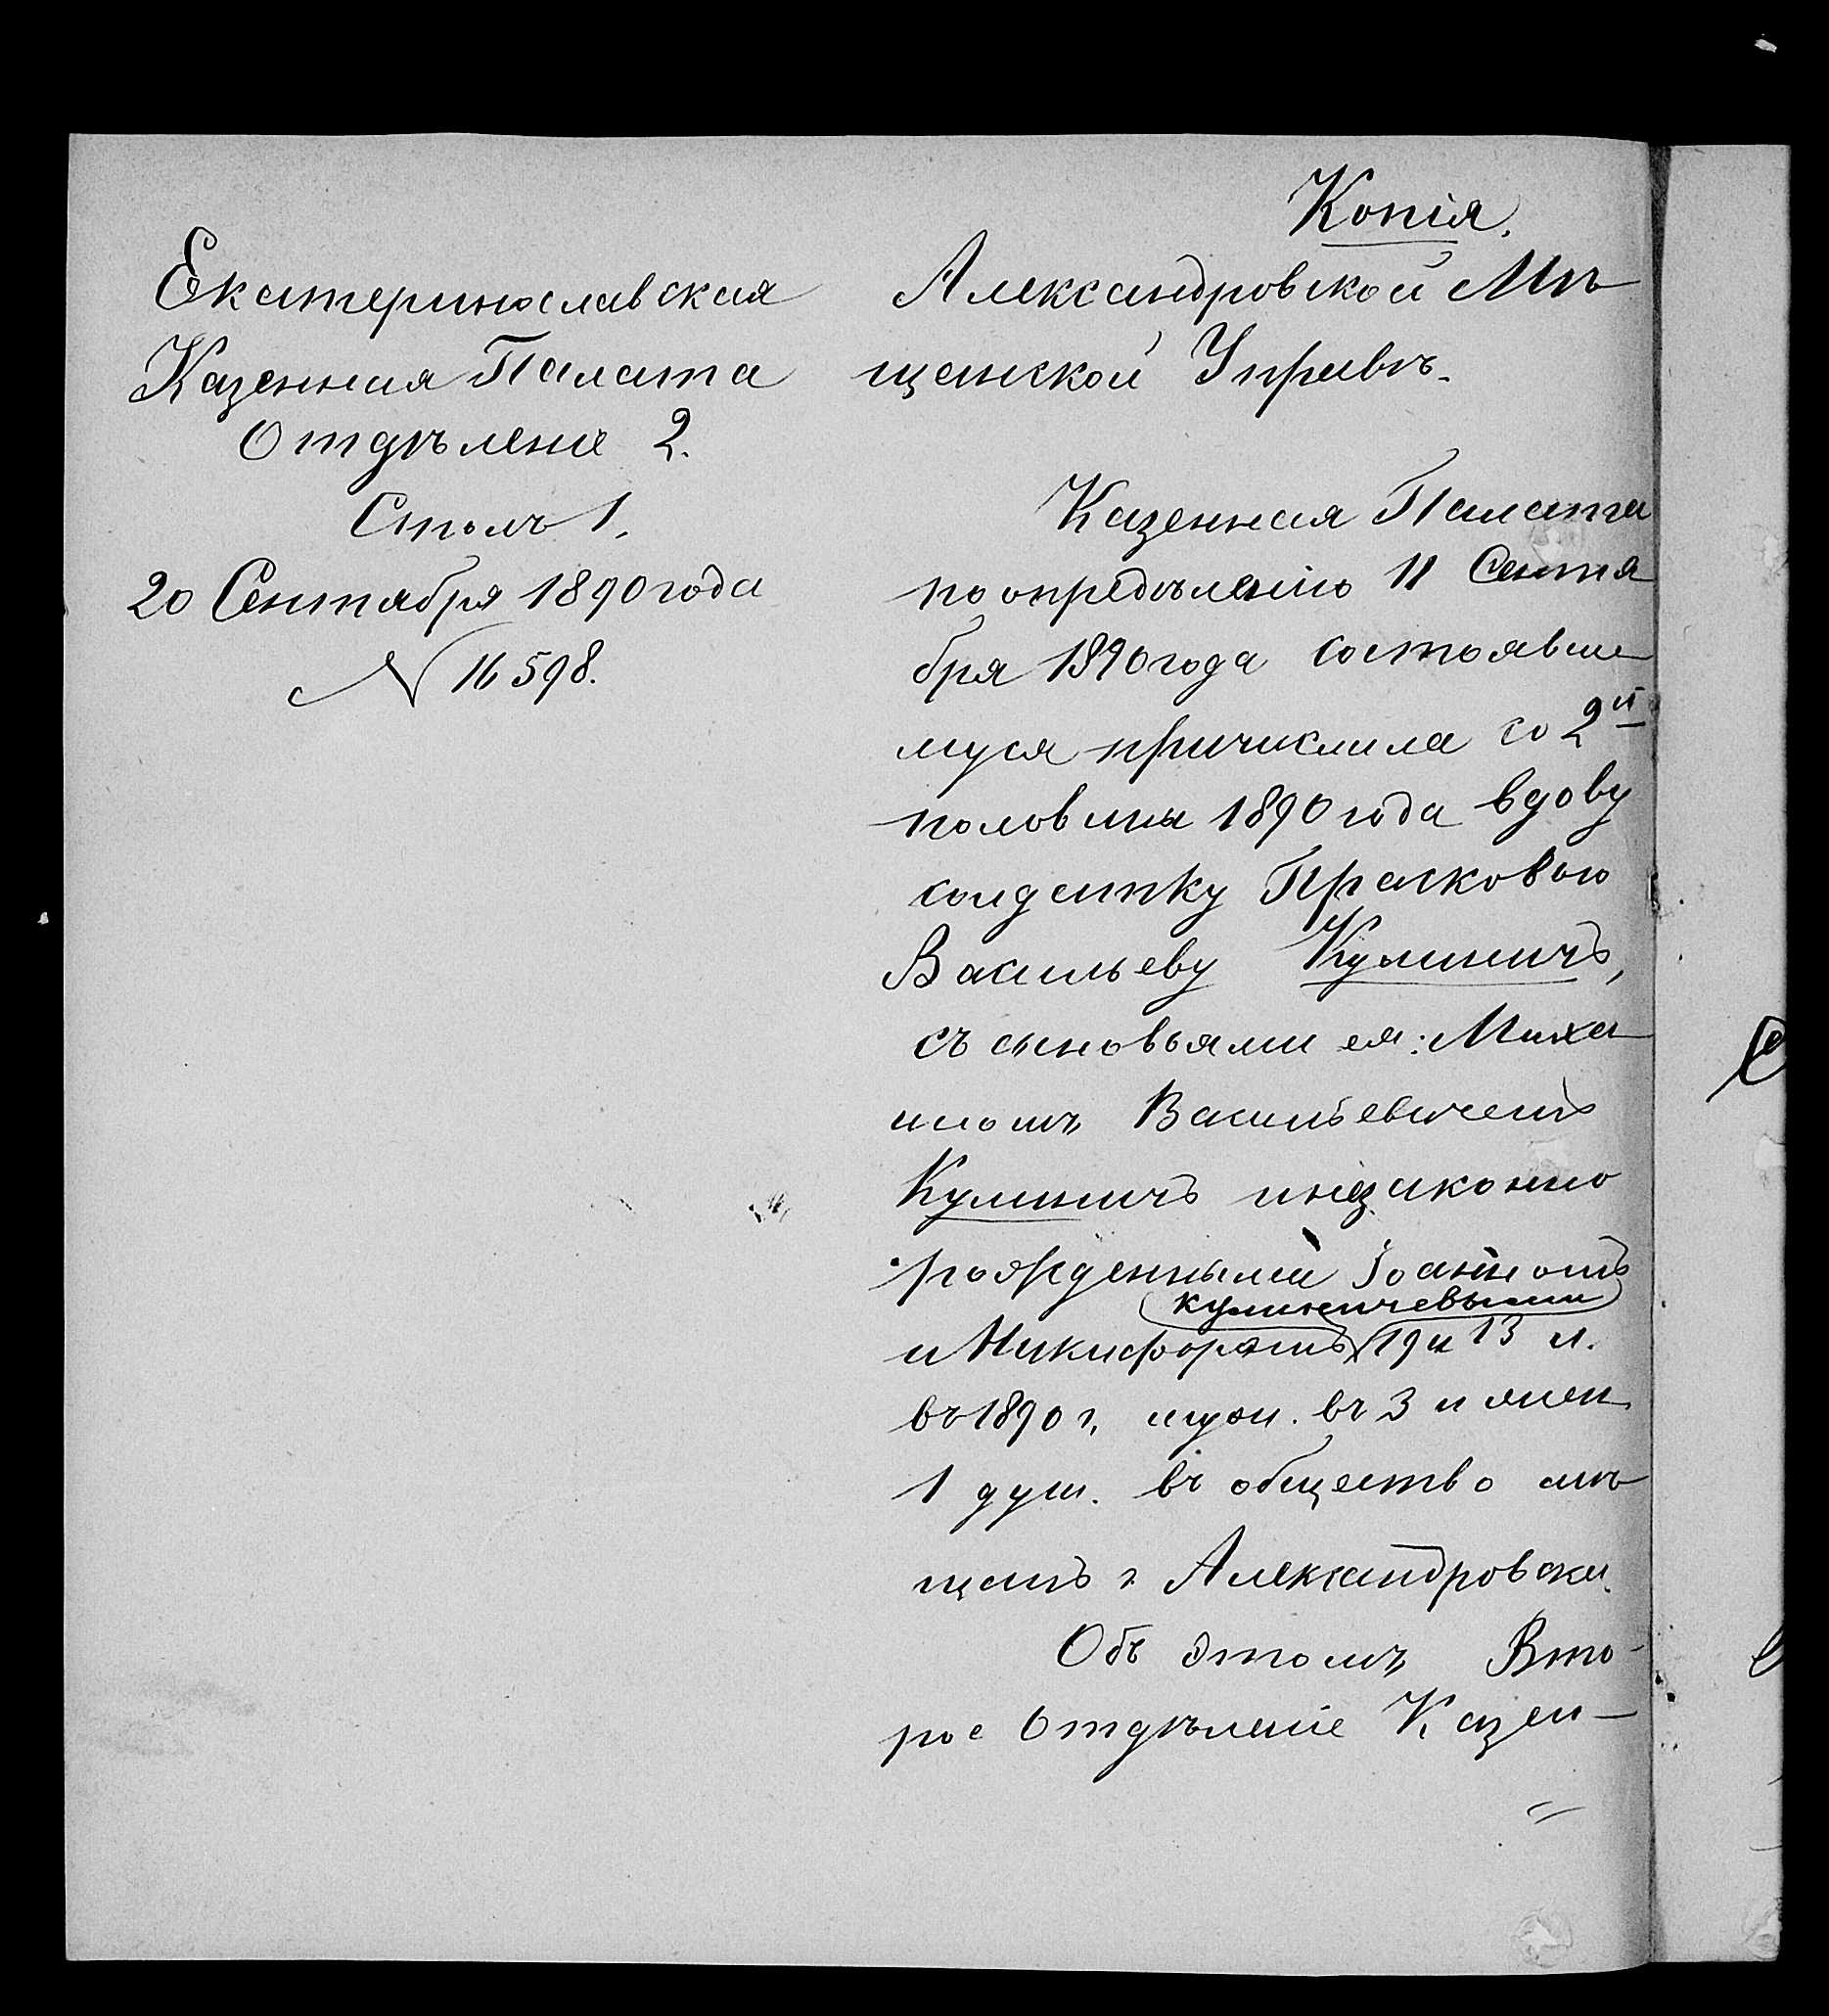 Копія.
Екатеринославская
Казенная Палата
Отдѣленіе 2.
Столъ 1.
20 Сентября 1890 года
№ 16598.
Александровской Мѣ
щанской Управѣ.
Казенная Палата
по опредѣленію 11 Сентя
бря 1890 года состоявше
муся причислила со 2й
половины 1890 года вдову
солдатку Прасковью
Васильеву Кулиничъ,
съ сыновьями ея: Миха
иломъ Васильевичемъ
Кулиничъ и незаконно
рожденными Іоанномъ
Кулиничевыми
и Никифоромъ 19 и 13 л.
въ 1890 г. муж. въ 3 и жен.
1 душ. въ общество мѣ
щанъ г. Александровска.
Объ этомъ Вто-
рое Отдѣленіе Казен-